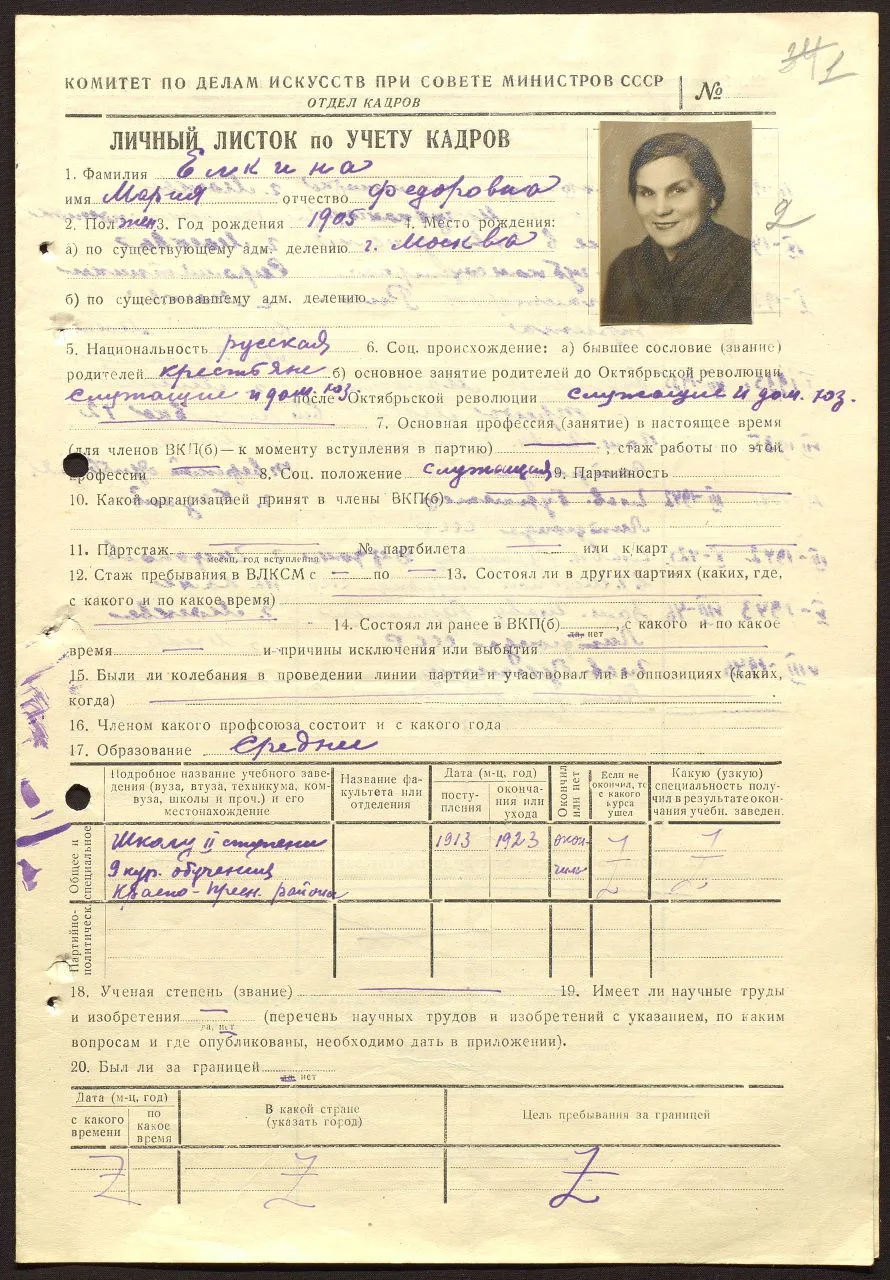 34 1
КОМИТЕТ ПО ДЕЛАМ ИСКУССТВ ПРИ СОВЕТЕ МИНИСТРОВ СССР
№
ОТДЕЛ КАДРОВ
ЛИЧНЫЙ ЛИСТОК по УЧЕТУ КАДРОВ
1. Фамилия Емкина
имя Мария отчество Федоровна
2. Пол жен 3. Год рождения 1905 4. Место рождения:
2
а) по существующему адм. делению г. Москва
б) по существовавшему адм. делению
5. Национальность русская 6. Соц. происхождение: а) бывшее сословие (звание)
родителей крестьяне б) основное занятие родителей до Октябрьской революции
служащие и дом. хоз. после Октябрьской революции служащие и дом. хоз.
7. Основная профессия (занятие) в настоящее время
(для членов ВКП(б)—к моменту вступления в партию) —, стаж работы по этой
профессии — 8. Соц. положение служащий 9. Партийность
10. Какой организацией принят в члены ВКП(б)
11. Партстаж — № партбилета — или к/карт —
месяц, год вступления
12. Стаж пребывания в ВЛКСМ с — по — 13. Состоял ли в других партиях (каких, где,
с какого и по какое время) —
14. Состоял ли ранее в ВКП(б) , с какого и по какое
да, нет
время — и причины исключения или выбытия —
15. Были ли колебания в проведении линии партии и участвовал ли в оппозициях (каких,
когда) —
16. Членом какого профсоюза состоит и с какого года
17. Образование Среднее
Подробное название учебного заведения (вуза, втуза, техникума, комвуза, школы и проч.) и его местонахождение
Название факультета или отделения
Дата (м-ц, год)
поступления
окончания или ухода
Окончил или нет
Если не окончил, то с какого курса ушел
Какую (узкую) специальность получил в результате окончания учебн. заведен.
Общее и специальное
Школу II ступени 1913 1923 окон-
9 кур. обучения чила
Красно-Пресн. района
Партийно-политическ.
18. Ученая степень (звание) — 19. Имеет ли научные труды
и изобретения — (перечень научных трудов и изобретений с указанием, по каким
да, нет
вопросам и где опубликованы, необходимо дать в приложении).
20. Был ли за границей
да, нет
Дата (м-ц, год)
с какого времени
по какое время
В какой стране (указать город)
Цель пребывания за границей
Z Z Z